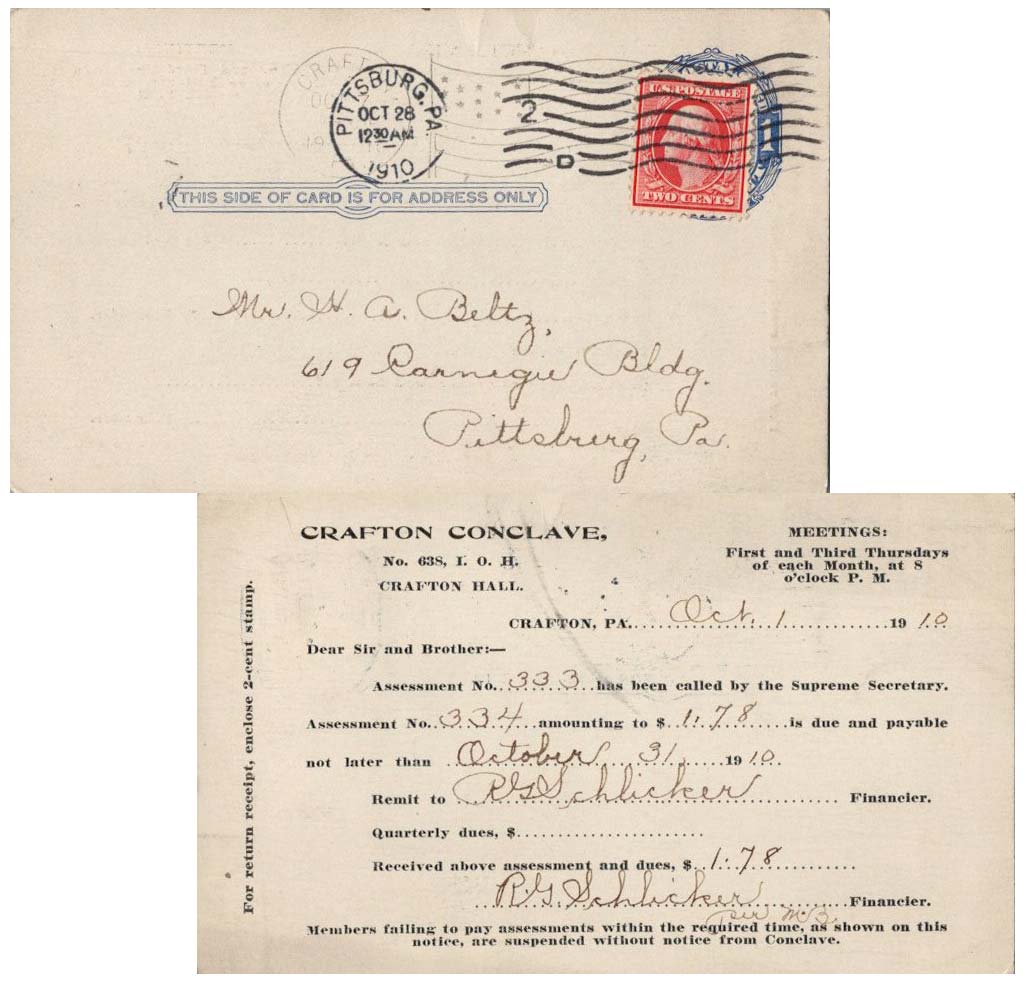 CRAFT
PITTSBURG, PA.
OCT 28
12 30 AM
1910
2
D
U.S. POSTAGE
TWO CENTS
1
THIS SIDE OF CARD IS FOR ADDRESS ONLY
Mr. H. A. Beltz,
619 Carnegie Bldg.
Pittsburg, Pa.
CRAFTON CONCLAVE,
No. 638, I. O. H.
CRAFTON HALL.
MEETINGS:
First and Third Thursdays
of each Month, at 8
o'clock P. M.
CRAFTON, PA. Oct. 1 1910
Dear Sir and Brother:—
Assessment No. 333 has been called by the Supreme Secretary.
Assessment No. 334 amounting to $ 1.78 is due and payable
not later than October 31, 1910.
Remit to R G Schlicker Financier.
Quarterly dues, $
Received above assessment and dues, $ 1.78
R. G. Schlicker Financier.
per M B.
Members failing to pay assessments within the required time, as shown on this
notice, are suspended without notice from Conclave.
For return receipt, enclose 2-cent stamp.